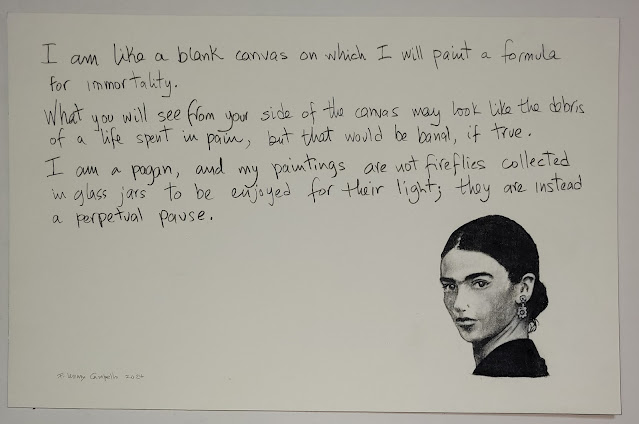 I am like a blank canvas on which I will paint a formula
for immortality.
What you will see from your side of the canvas may look like the debris
of a life spent in pain, but that would be banal, if true.
I am a pagan, and my paintings are not fireflies collected
in glass jars to be enjoyed for their light; they are instead
a perpetual pause.